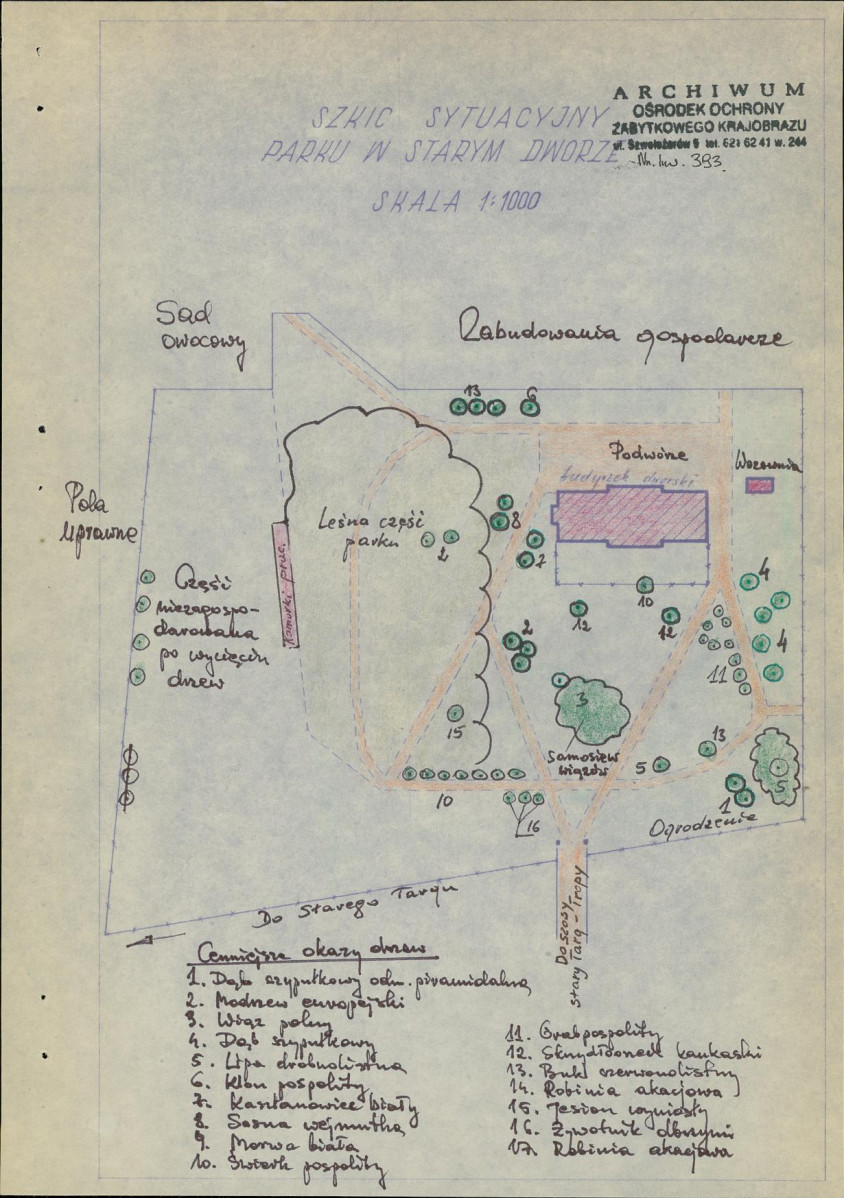 ARCHIWUM
OŚRODEK OCHRONY
ZABYTKOWEGO KRAJOBRAZU
ul. Szwoleżerów 9 tel. 621 62 41 w. 244
Nr. inw. 393
SZKIC SYTUACYJNY
PARKU W STARYM DWORZE
SKALA 1:1000
Sad
owocowy
Zabudowania gospodarcze
13
6
Podwórze
Wozownia
budynek dworski
Pola
Uprawne
Leśna część
parku
2
8
7
Komórki prac.
Część
niezagospo-
darowana
po wycięciu
drzew
4
10
12
12
2
4
11
3
15
13
Samosiew
wiązów
5
5
10
1
16
Ogrodzenie
Do Starego Targu
Do szosy
Stary Targ - Tropy
Cenniejsze okazy drzew
1. Dąb szypułkowy odm. piramidalna
2. Modrzew europejski
3. Wiąz polny
4. Dąb szypułkowy
5. Lipa drobnolistna
6. Klon pospolity
7. Kasztanowiec biały
8. Sosna wejmutka
9. Morwa biała
10. Świerk pospolity
11. Grab pospolity
12. Skrzydłorzech kaukaski
13. Buk czerwonolistny
14. Robinia akacjowa
15. Jesion wyniosły
16. Żywotnik olbrzymi
17. Robinia akacjowa